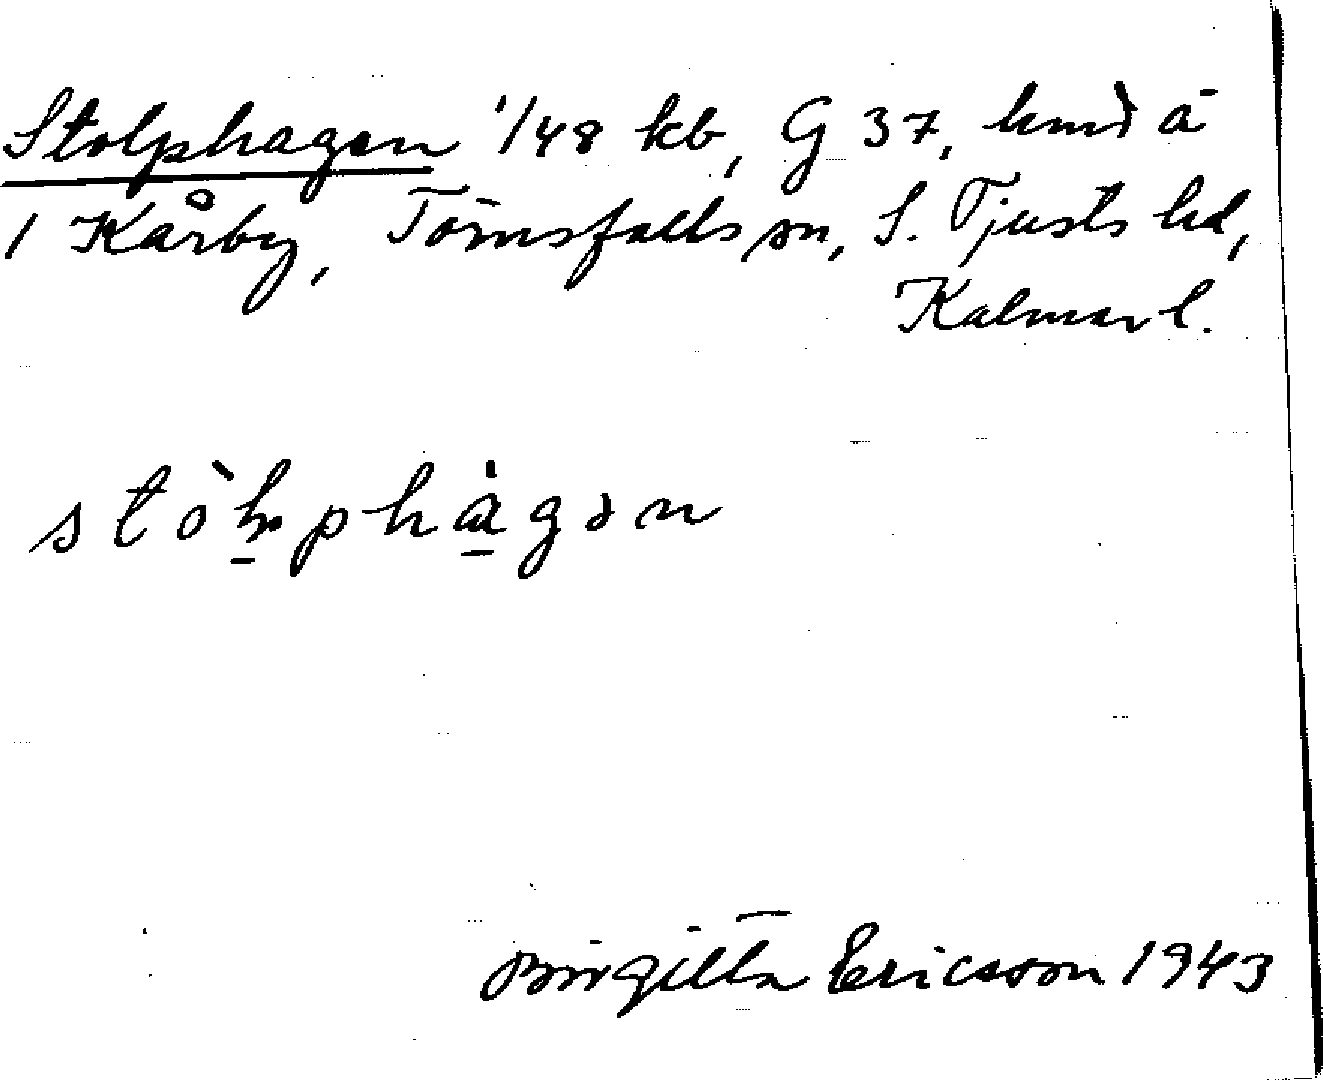 Stolphagen 1/48 kb, G 37, hmd å
1 Kårby, Törnsfalls sn, S. Tjusts hd,
Kalmar l.
stòlphàgən
Birgitta Ericsson 1943